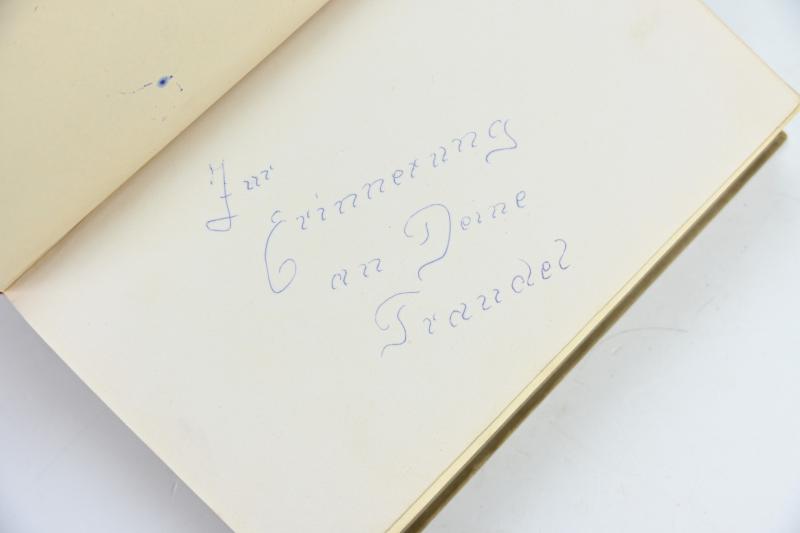 Zur
Erinnerung
an Deine
Traudel